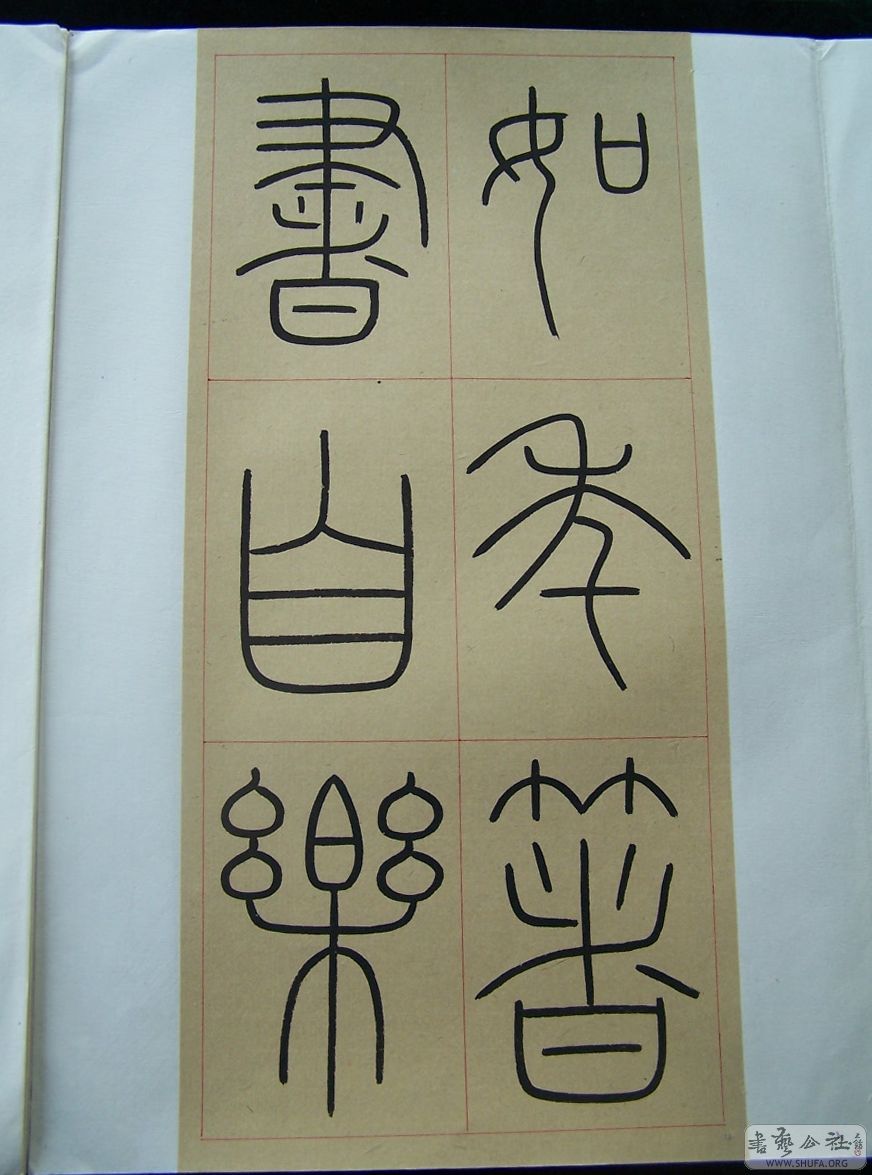 如年著
書自樂
書藝公社
WWW.SHUFA.ORG